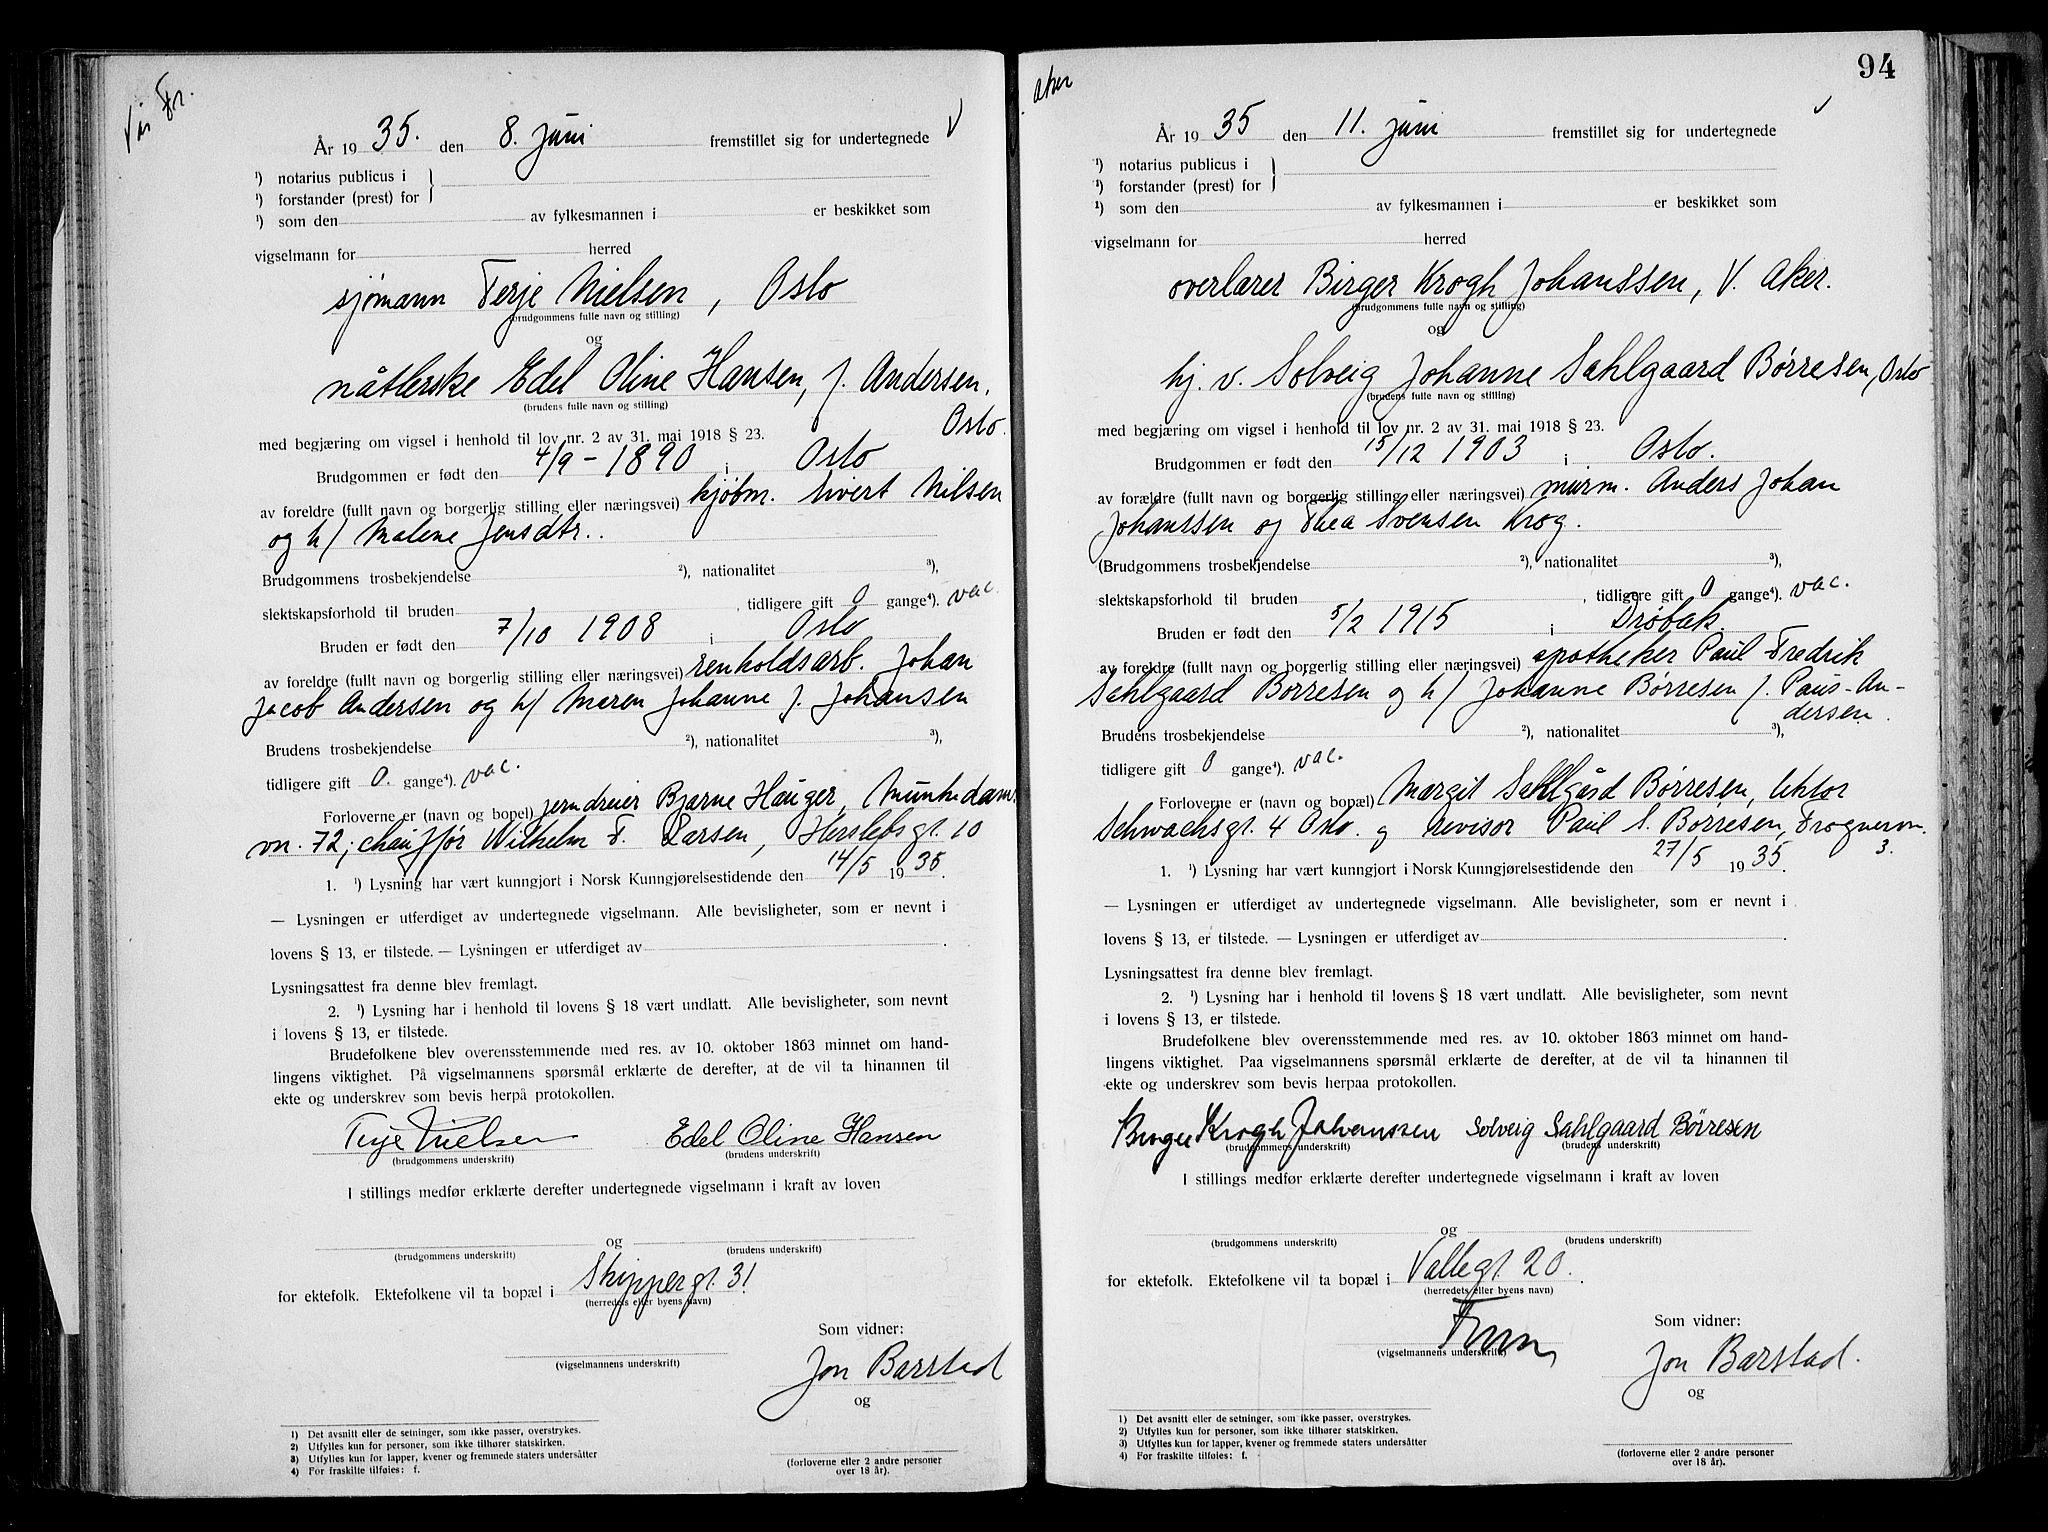 Vår Fr.
År 1935. den 8. juni fremstillet sig for undertegnede V
¹) notarius publicus i
¹) forstander (prest) for
¹) som den av fylkesmannen i er beskikket som
vigselmann for herred
sjømann Terje Nielsen, Oslo
(brudgommens fulle navn og stilling)
og
nåtlerske Edel Oline Hansen, f. Andersen,
(brudens fulle navn og stilling)
Oslo.
med begjæring om vigsel i henhold til lov nr. 2 av 31. mai 1918 § 23.
Brudgommen er født den 4/9 - 1890 i Oslo
av foreldre (fullt navn og borgerlig stilling eller næringsvei) kjøbm. Sivert Nilsen
og h/ Malene Jensdtr.
Brudgommens trosbekjendelse ²), nationalitet ³),
slektskapsforhold til bruden , tidligere gift 0 gange⁴). vac.
Bruden er født den 7/10 1908 i Oslo
av foreldre (fullt navn og borgerlig stilling eller næringsvei) renholdsarb. Johan
Jacob Andersen og h/ Maren Johanne f. Johansen
Brudens trosbekjendelse ²), nationalitet ³),
tidligere gift 0. gange⁴). vac.
Forloverne er (navn og bopel) jerndreier Bjarne Hauger, Munkedams
vn. 72; chauffør Wilhelm F. Larsen, Herslebsgt. 10
1. ¹) Lysning har vært kunngjort i Norsk Kunngjørelsestidende den 14/5 1935.
— Lysningen er utferdiget av undertegnede vigselmann. Alle bevisligheter, som er nevnt i
lovens § 13, er tilstede. — Lysningen er utferdiget av .
Lysningsattest fra denne blev fremlagt.
2. ¹) Lysning har i henhold til lovens § 18 vært undlatt. Alle bevisligheter, som nevnt
i lovens § 13, er tilstede.
Brudefolkene blev overensstemmende med res. av 10. oktober 1863 minnet om hand-
lingens viktighet. På vigselmannens spørsmål erklærte de derefter, at de vil ta hinannen til
ekte og underskrev som bevis herpå protokollen.
Terje Nielsen Edel Oline Hansen
(brudgommens underskrift) (brudens underskrift)
I stillings medfør erklærte derefter undertegnede vigselmann i kraft av loven
og
(brudgommens underskrift) (brudens underskrift)
for ektefolk. Ektefolkene vil ta bopæl i Skippergt. 31
(herredets eller byens navn)
Som vidner:
(vigselmannens underskrift)
Jon Barstad
og
1) Det avsnitt eller de setninger, som ikke passer, overstrykes.
2) Utfylles kun for personer, som ikke tilhører statskirken.
3) Utfylles kun for lapper, kvener og fremmede staters undersåtter
4) For fraskilte tilføies: f.
(forloverne eller 2 andre personer
over 18 år).
94
Aker
År 1935 den 11. juni fremstillet sig for undertegnede
¹) notarius publicus i
¹) forstander (prest) for
¹) som den av fylkesmannen i er beskikket som
vigselmann for herred
overlærer Birger Krogh Johanssen, V. Aker.
(brudgommens fulle navn og stilling)
og
hj. v. Solveig Johanne Sahlgaard Børresen, Oslo
(brudens fulle navn og stilling)
med begjæring om vigsel i henhold til lov nr. 2 av 31. mai 1918 § 23.
Brudgommen er født den 15/12 1903 i Oslo.
av forældre (fullt navn og borgerlig stilling eller næringsvei) murm. Anders Johan
Johanssen og Thea Svensen Krog.
(Brudgommens trosbekjendelse ²), nationalitet ³),
slektskapsforhold til bruden , tidligere gift 0 gange⁴). vac.
Bruden er født den 5/2 1915 i Drøbak.
av foreldre (fullt navn og borgerlig stilling eller næringsvei) apotheker Paul Fredrik
Sahlgaard Børresen og h/ Johanne Børresen f. Paus-An-
dersen.
Brudens trosbekjendelse ²), nationalitet ³),
tidligere gift 0 gange⁴). vac.
Forloverne er (navn og bopæl) Margit Sahlgård Børresen, lektor
Schwachsgt. 4 Oslo. og revisor Paul S. Børresen, Frognervn.
3.
1. ¹) Lysning har vært kunngjort i Norsk Kunngjørelsestidende den 27/5 1935.
— Lysningen er utferdiget av undertegnede vigselmann. Alle bevisligheter, som er nevnt i
lovens § 13, er tilstede. — Lysningen er utferdiget av .
Lysningsattest fra denne blev fremlagt.
2. ¹) Lysning har i henhold til lovens § 18 vært undlatt. Alle bevisligheter, som nevnt
i lovens § 13, er tilstede.
Brudefolkene blev overensstemmende med res. av 10. oktober 1863 minnet om hand-
lingens viktighet. Paa vigselmannens spørsmål erklærte de derefter, at de vil ta hinannen til
ekte og underskrev som bevis herpaa protokollen.
Birger Krogh Johanssen Solveig Sahlgaard Børresen
(brudgommens underskrift) (brudens underskrift)
I stillings medfør erklærte derefter undertegnede vigselmann i kraft av loven
og
(brudgommens underskrift) (brudens underskrift)
for ektefolk. Ektefolkene vil ta bopæl i Vallegt. 20.
(herredets eller byens navn)
Som vidner:
(vigselmannens underskrift)
Jon Barstad.
og
1) Det avsnitt eller de setninger, som ikke passer, overstrykes.
2) Utfylles kun for personer, som ikke tilhører statskirken.
3) Utfylles kun for lapper, kvener og fremmede staters undersåtter
4) For fraskilte tilføies: f.
(forloverne eller 2 andre personer
over 18 år).